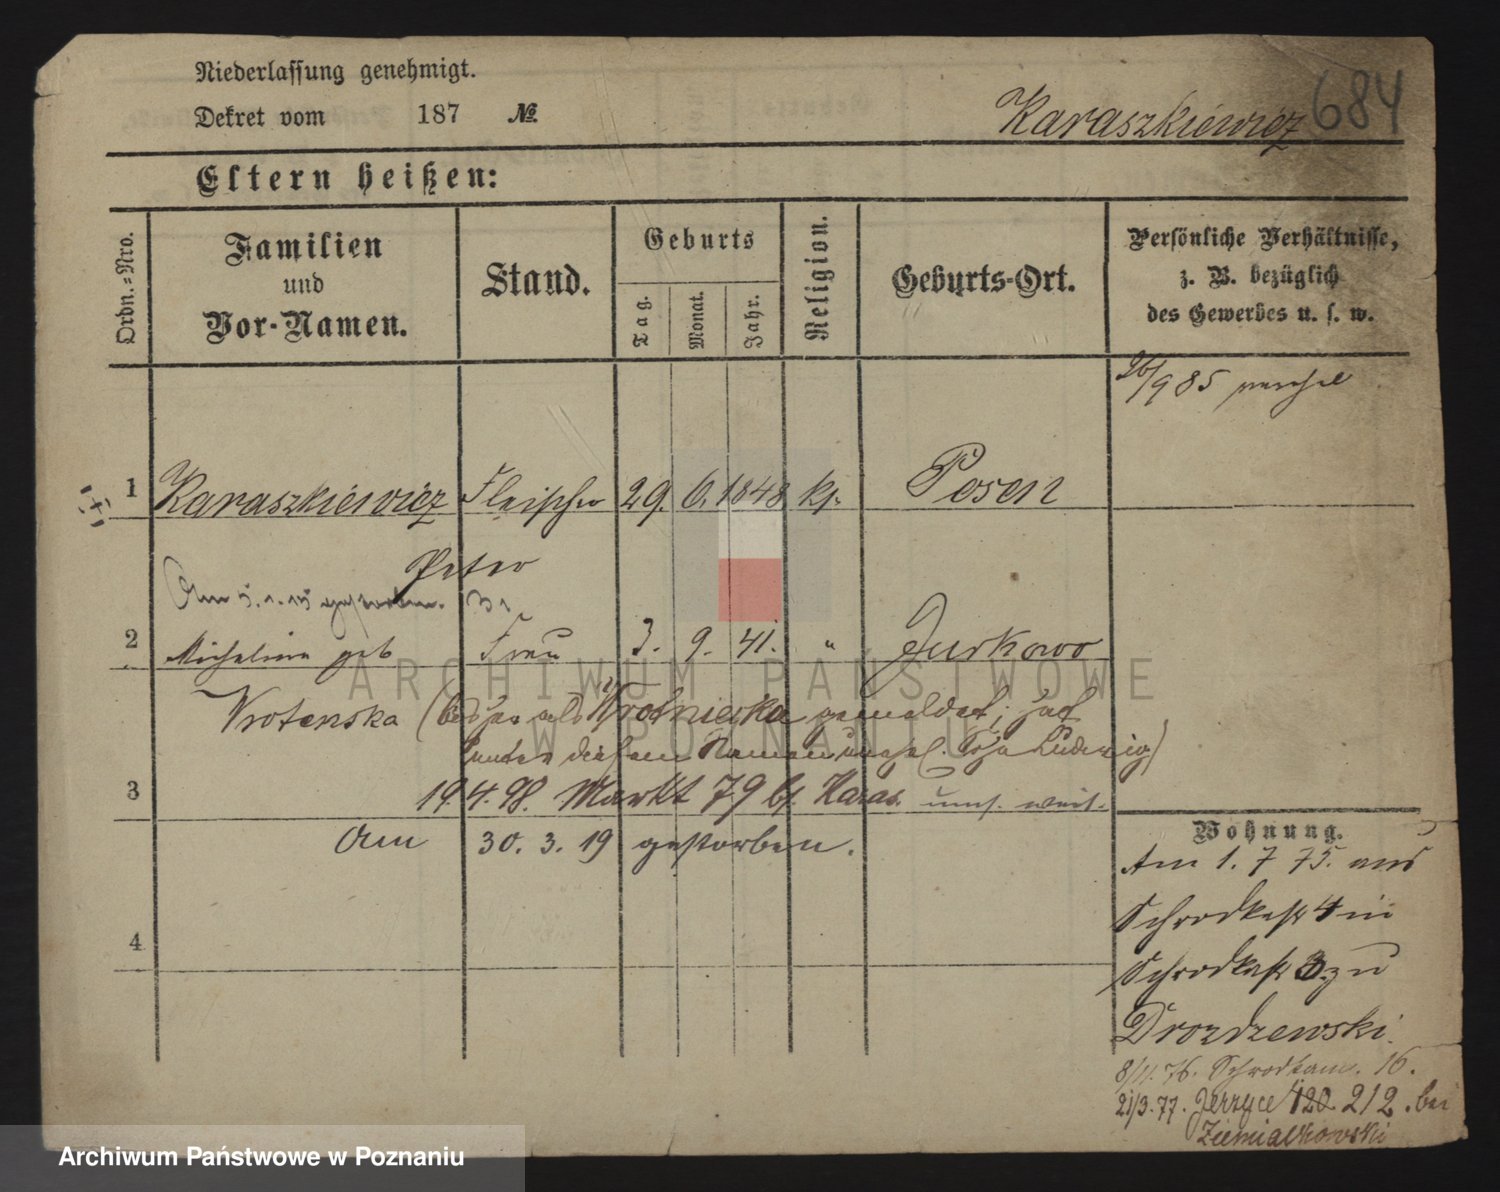 Niederlassung genehmigt.
Dekret vom 187 №
Karaszkiewicz 684
Eltern heißen:
Ordn.=Nro.
Familien
und
Vor-Namen.
Stand.
Geburts
Tag.
Monat.
Jahr.
Religion.
Geburts-Ort.
Persönliche Verhältnisse,
z. B. bezüglich
des Gewerbes u. s. w.
26/9 85
1 Karaszkiewicz Fleischer 29. 6. 1848 k.
Posen
Peter
Am 5. 1. 15 gestorben.
2 Michalina geb Frau 3. 9. 41. "
Jurkowo
Wrotenska (bisher als Wrotniecka gemeldet; hat
unter diesem Namen unehel. Ludwig)
3
19.4.98. Markt 79 b. Karas.
Am 30. 3. 19 gestorben.
4
Wohnung.
Am 1. 7 75. aus
Schrodkastr 4 in
Schrodkastr 3 zu
Drozdzewski.
8/11.76. Schrodkam. 16.
21/3.77. Jerzyce 120. 212. bei
Ziemialkowski
ARCHIWUM PAŃSTWOWE
W POZNANIU
Archiwum Państwowe w Poznaniu